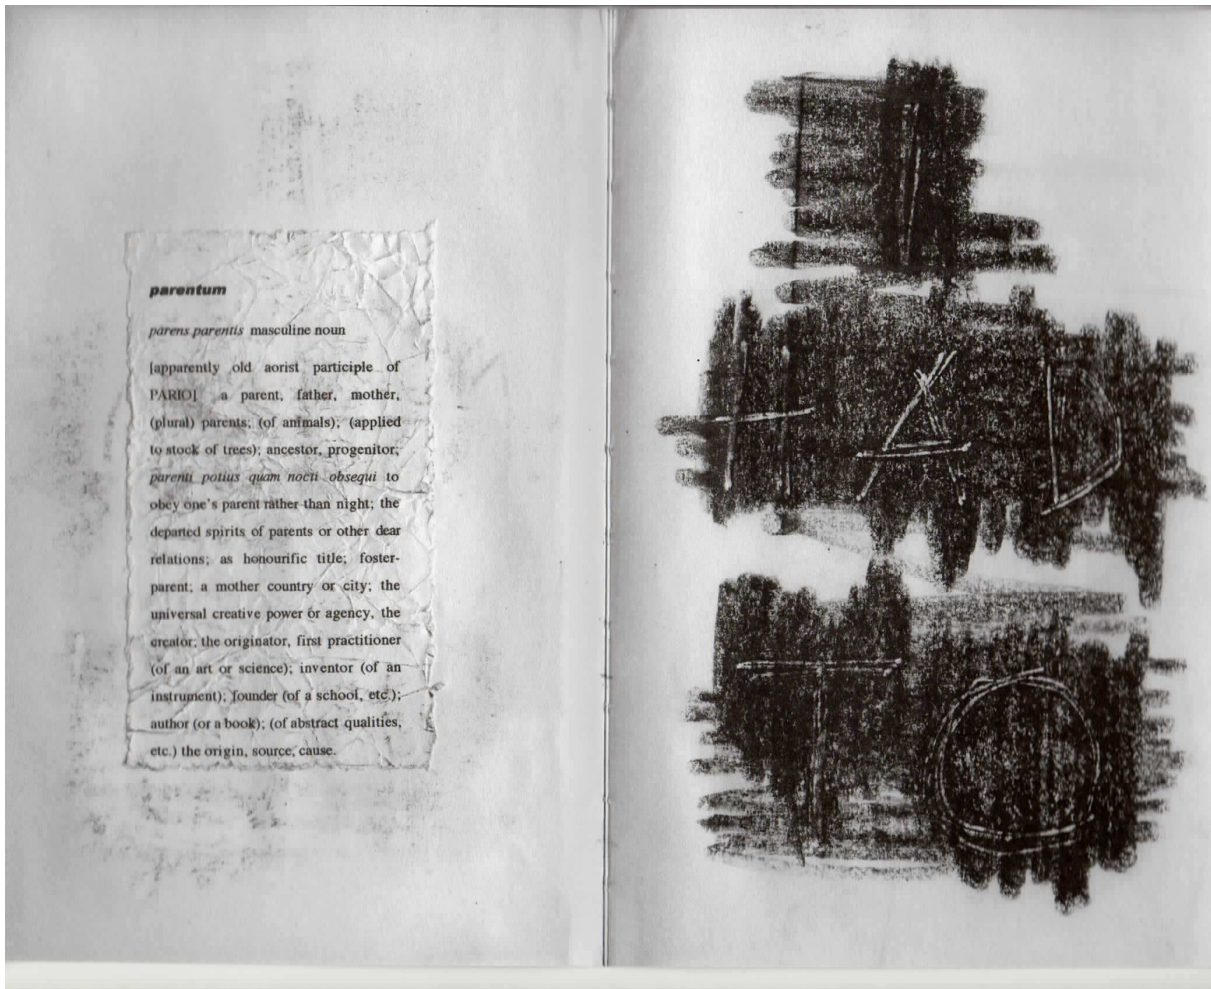 parentum
parens parentis masculine noun
[apparently old aorist participle of
PARIO] a parent, father, mother,
(plural) parents; (of animals); (applied
to stock of trees); ancestor, progenitor;
parenti potius quam nocti obsequi to
obey one's parent rather than night; the
departed spirits of parents or other dear
relations; as honourific title; foster-
parent; a mother country or city; the
universal creative power or agency, the
creator; the originator, first practitioner
(of an art or science); inventor (of an
instrument); founder (of a school, etc.);
author (or a book); (of abstract qualities,
etc.) the origin, source, cause.
I
HAD
TO